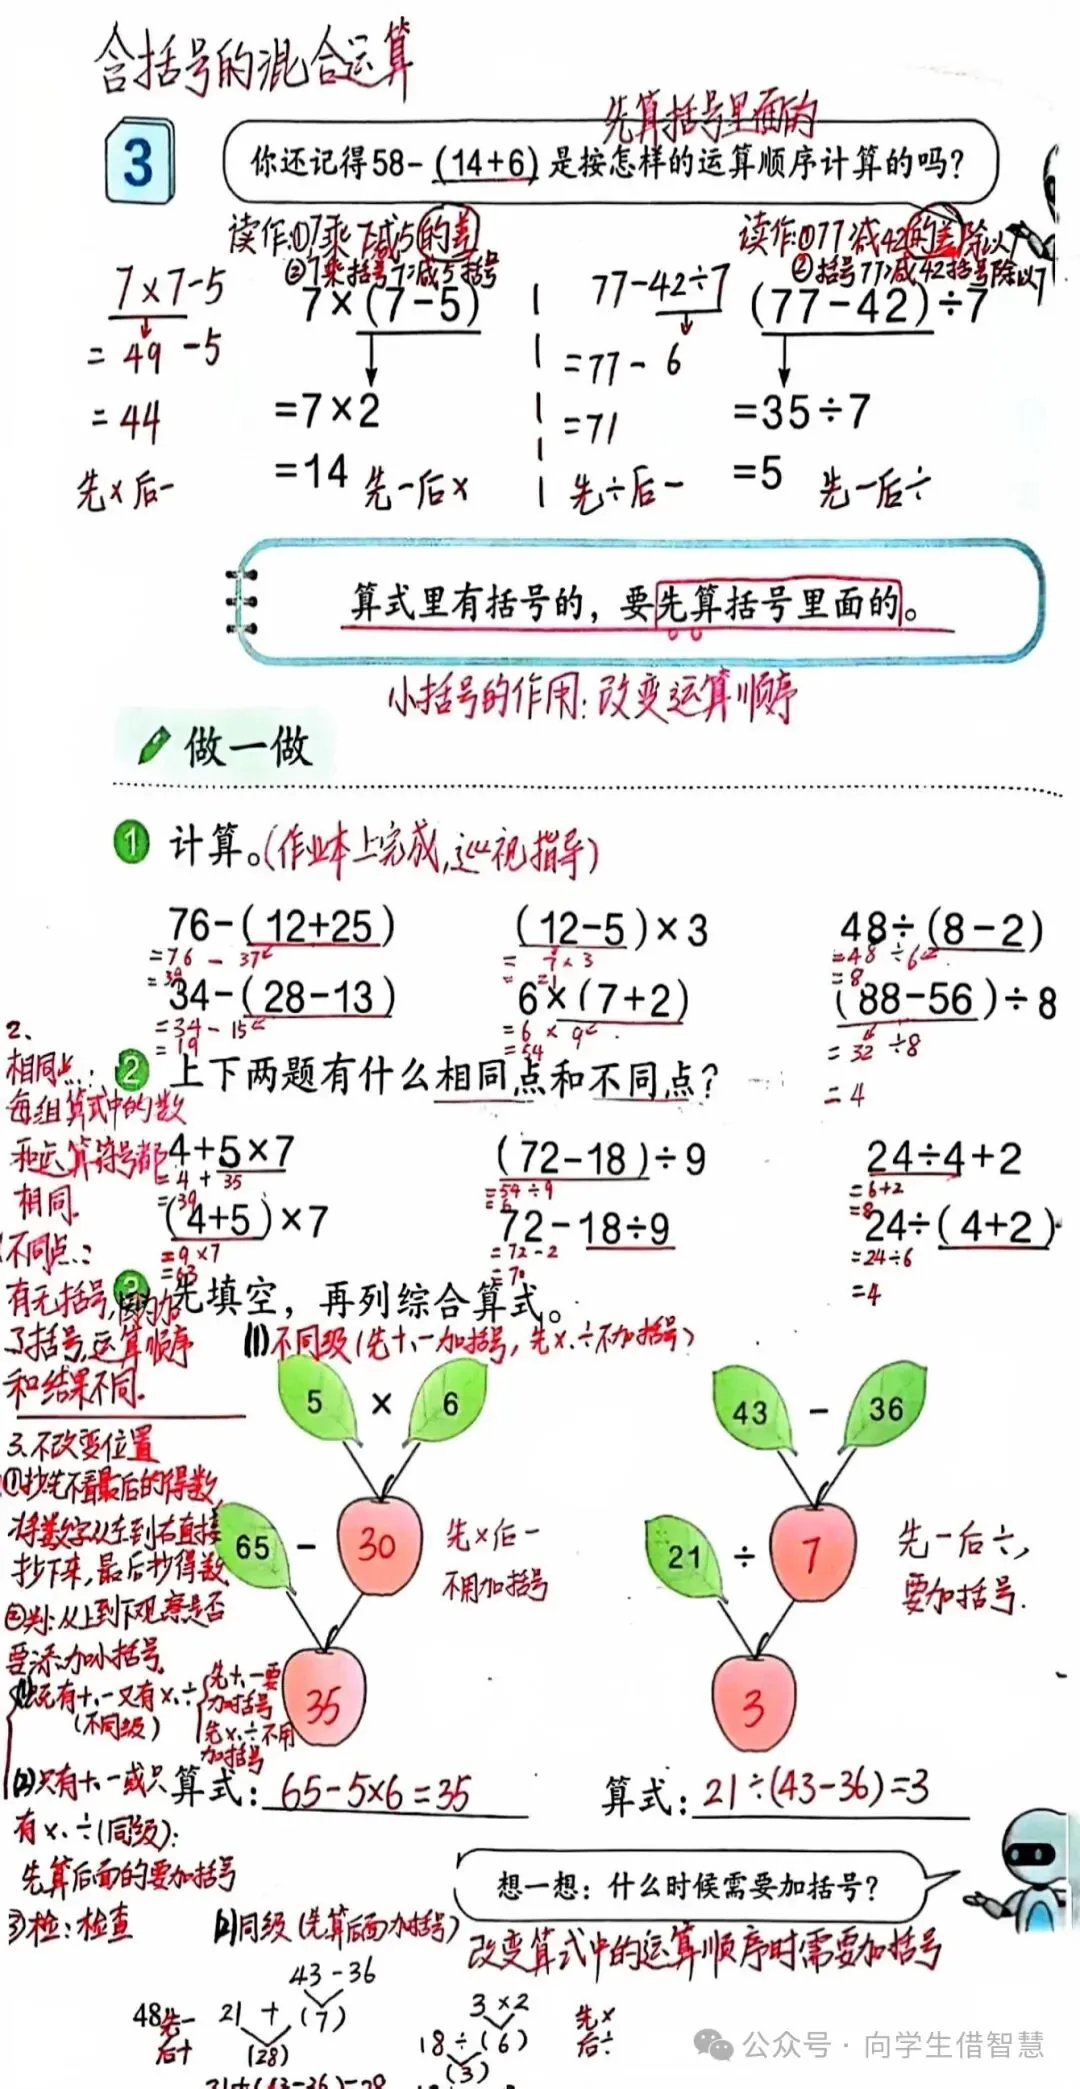 含括号的混合运算
先算括号里面的
3
你还记得58-(14+6)是按怎样的运算顺序计算的吗?
读作:①7乘7减5的差
②7乘括号7减5括号
读作:①77减42的差除以7
②括号77减42括号除以7
7×7-5
=49-5
=44
先×后-
7×(7-5)
=7×2
=14 先-后×
77-42÷7
=77-6
=71
先÷后-
(77-42)÷7
=35÷7
=5 先-后÷
算式里有括号的，要先算括号里面的。
小括号的作用:改变运算顺序
做一做
1 计算。(作业本上完成,巡视指导)
76-(12+25) (12-5)×3 48÷(8-2)
=76-37 =7×3 =48÷6
=39 =8
34-(28-13) 6×(7+2) (88-56)÷8
=34-15 =6×9 =32÷8
=19 =54 =4
2 上下两题有什么相同点和不同点?
4+5×7 (72-18)÷9 24÷4+2
=4+35 =54÷9 =6+2
=39 =6 =8
(4+5)×7 72-18÷9 24÷(4+2)
=9×7 =72-2 =24÷6
=63 =70 =4
2、
相同点:
每组算式中的数
和运算符号都
相同.
不同点:
有无括号,因为加
了括号,运算顺序
和结果不同.
先填空，再列综合算式。
(1)不同级(先+、-加括号,先×、÷不加括号)
5 × 6
65 - 30
35
先×后-
不用加括号
43 - 36
21 ÷ 7
3
先-后÷,
要加括号.
3、不改变位置
①抄:先不看最后的得数,
将数字从左到右直接
抄下来,最后抄得数
②判:从上到下观察是否
要添加小括号.
(1)既有+、-又有×、÷
(不同级)
先+、-要
加括号
先×、÷不用
加括号
(2)只有+、-或只
有×、÷(同级):
先算后面的要加括号
③检:检查
算式:65-5×6=35
算式:21÷(43-36)=3
想一想: 什么时候需要加括号?
改变算式中的运算顺序时需要加括号
(2)同级(先算后面加括号)
43-36
21 + (7)
(28)
先-
后+
3×2
18÷(6)
(3)
先×
后÷
公众号·向学生借智慧